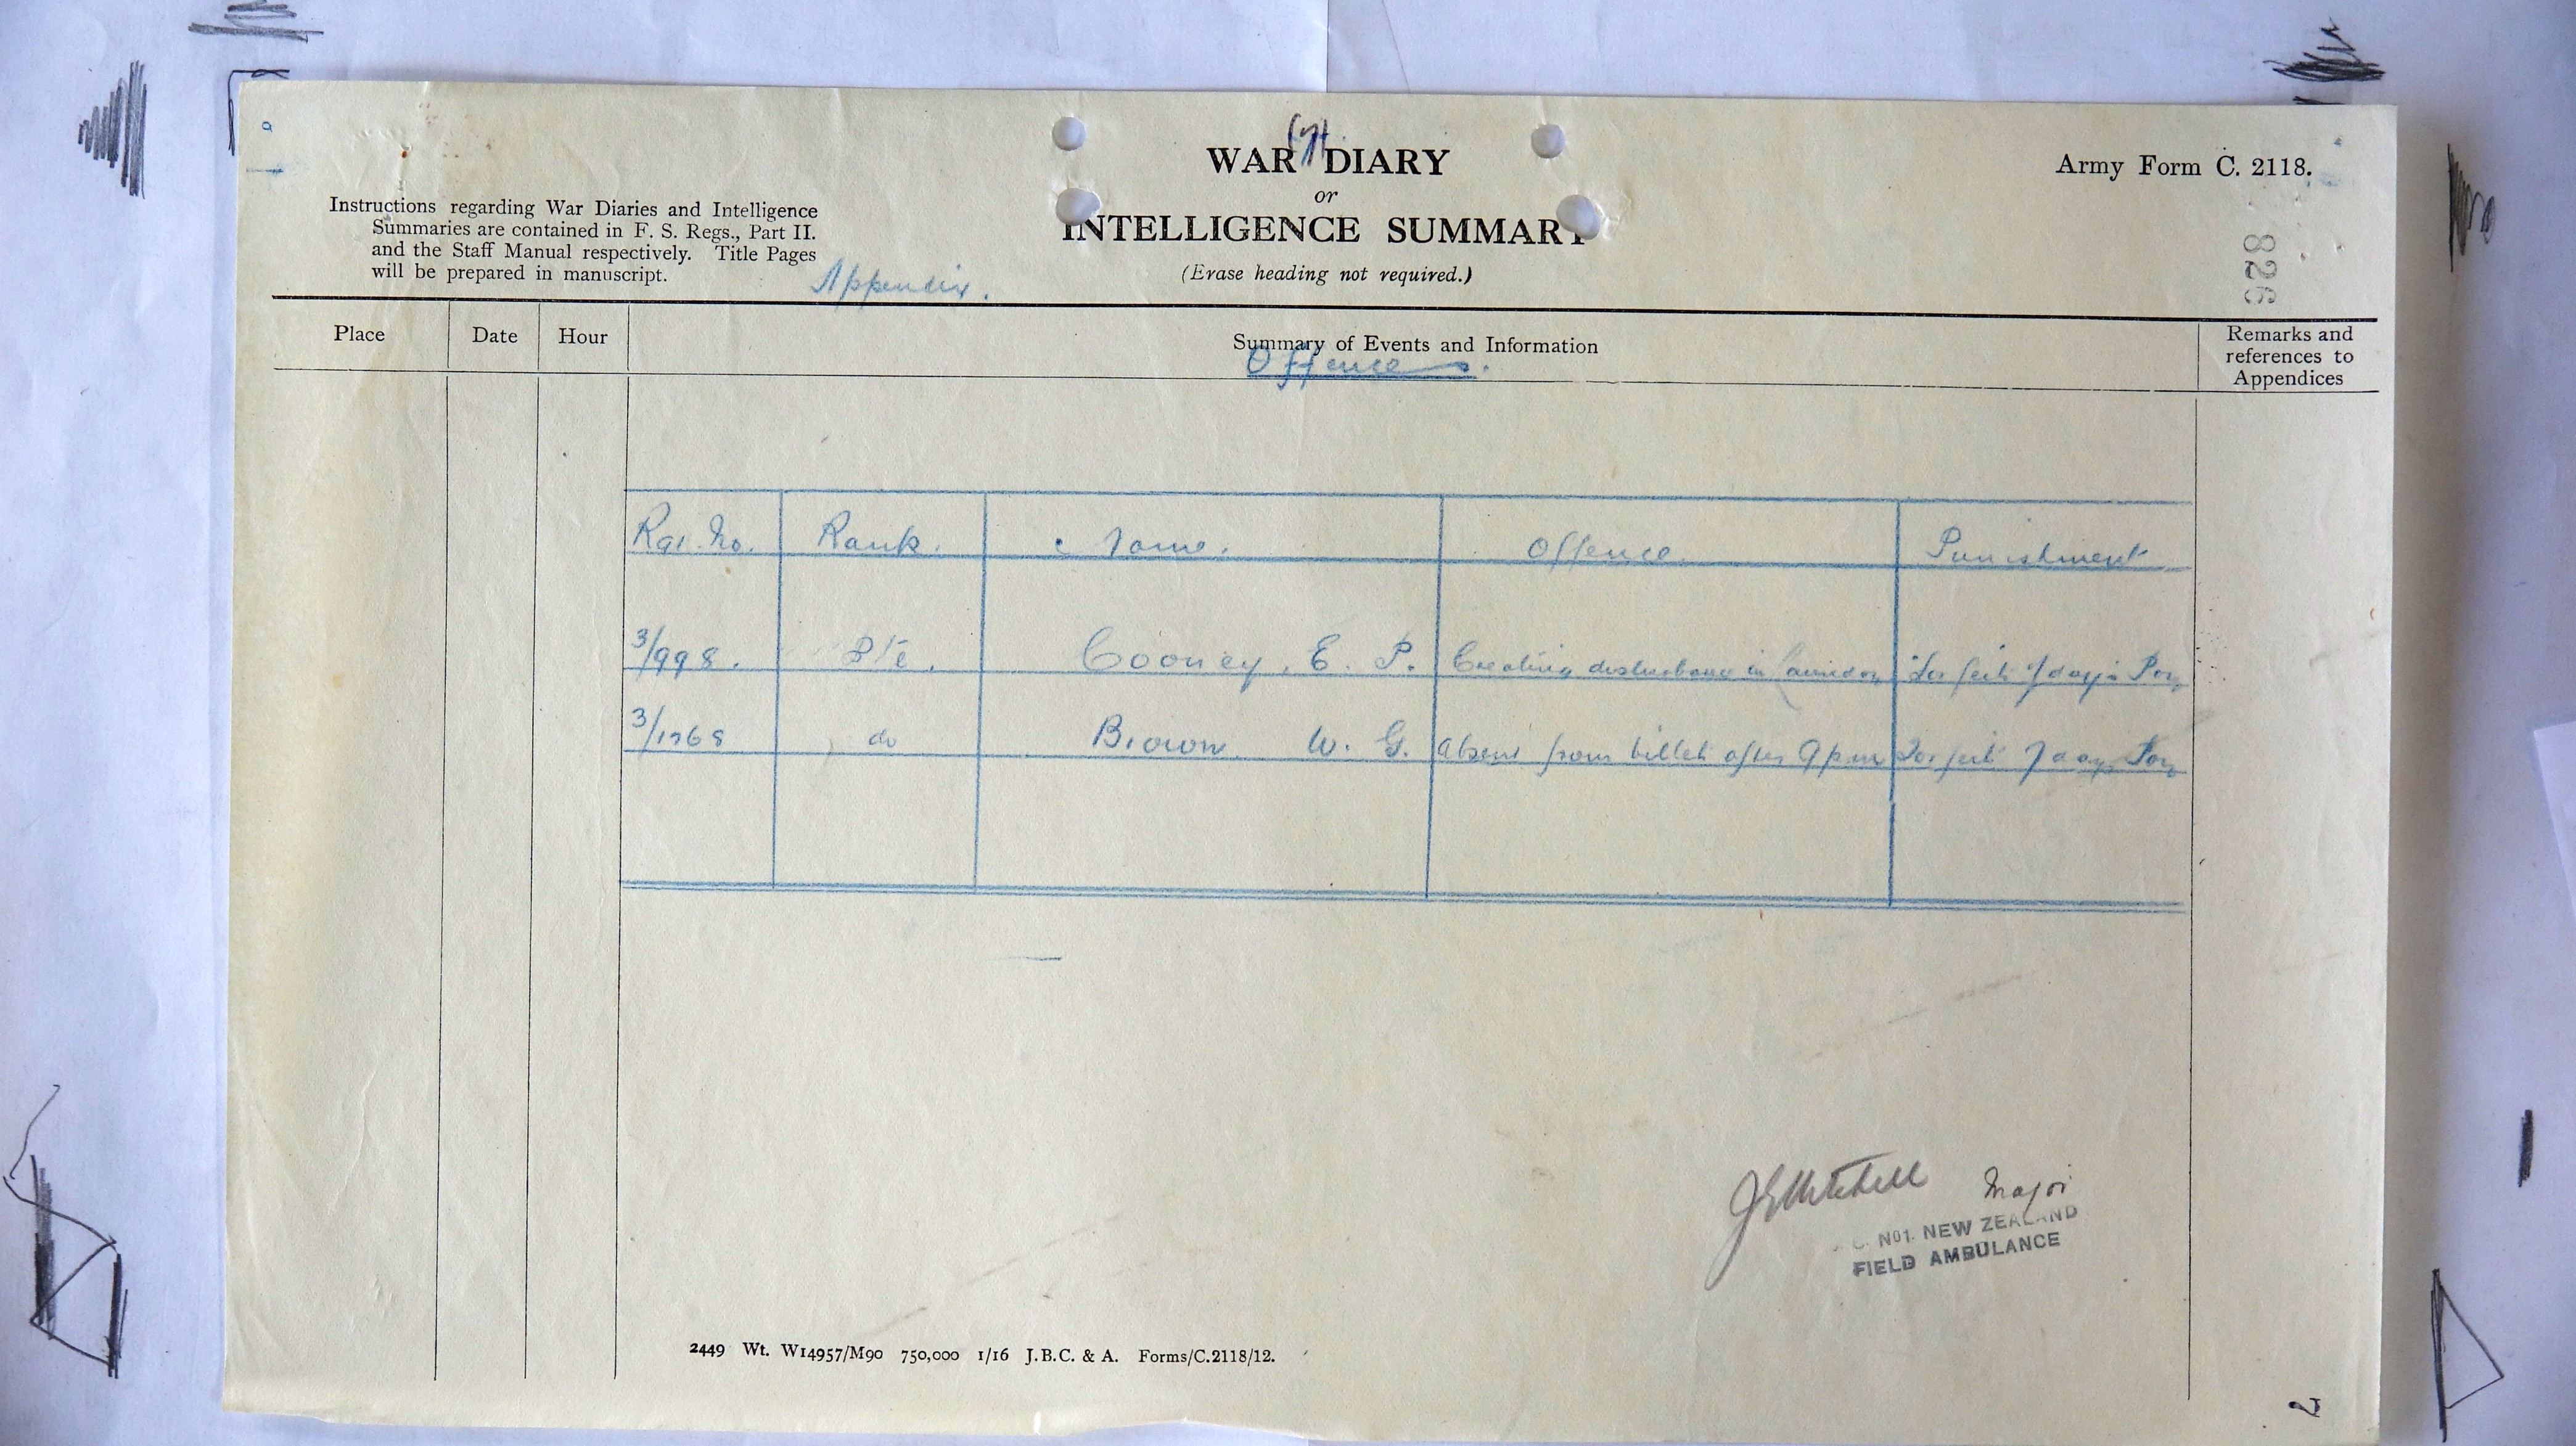 WAR DIARY
or
INTELLIGENCE SUMMARY
(Erase heading not required.)
Army Form C. 2118.
826
Instructions regarding War Diaries and Intelligence
Summaries are contained in F. S. Regs., Part II.
and the Staff Manual respectively. Title Pages
will be prepared in manuscript.
Appendix.
Place Date Hour Summary of Events and Information Remarks and references to Appendices
Offences.
Rgt. No. Rank. Name. Offence. Punishment
3/998. Pte. Cooney, E. P. Creating disturbance in Forfeit 7 days Pay
3/1268 do Brown W. G. Absent from billet after 9 pm Forfeit 7 days Pay
J E Mitchell Major
C. No1. NEW ZEALAND
FIELD AMBULANCE
2449 Wt. W14957/M90 750,000 1/16 J.B.C. & A. Forms/C.2118/12.
2